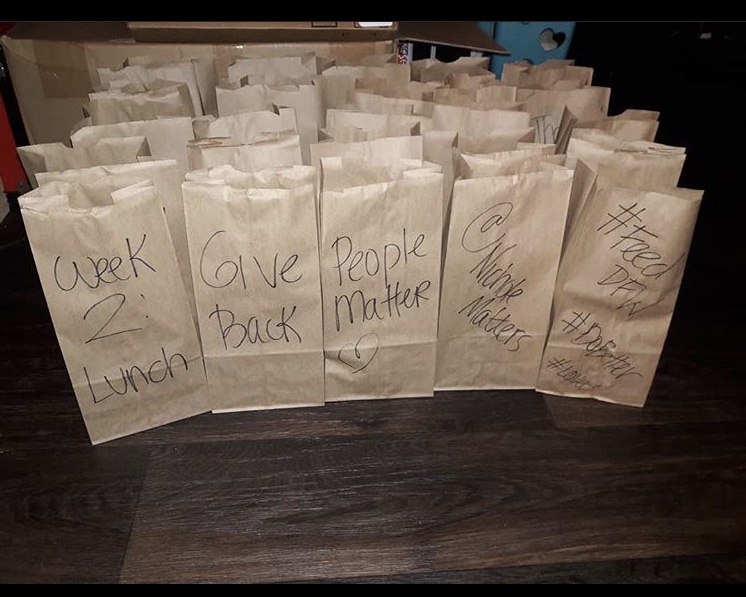 Week
2:
Lunch
Give
Back
People
Matter
@
Nichole
Matters
#Feed
DFW
#DoBetter
Th